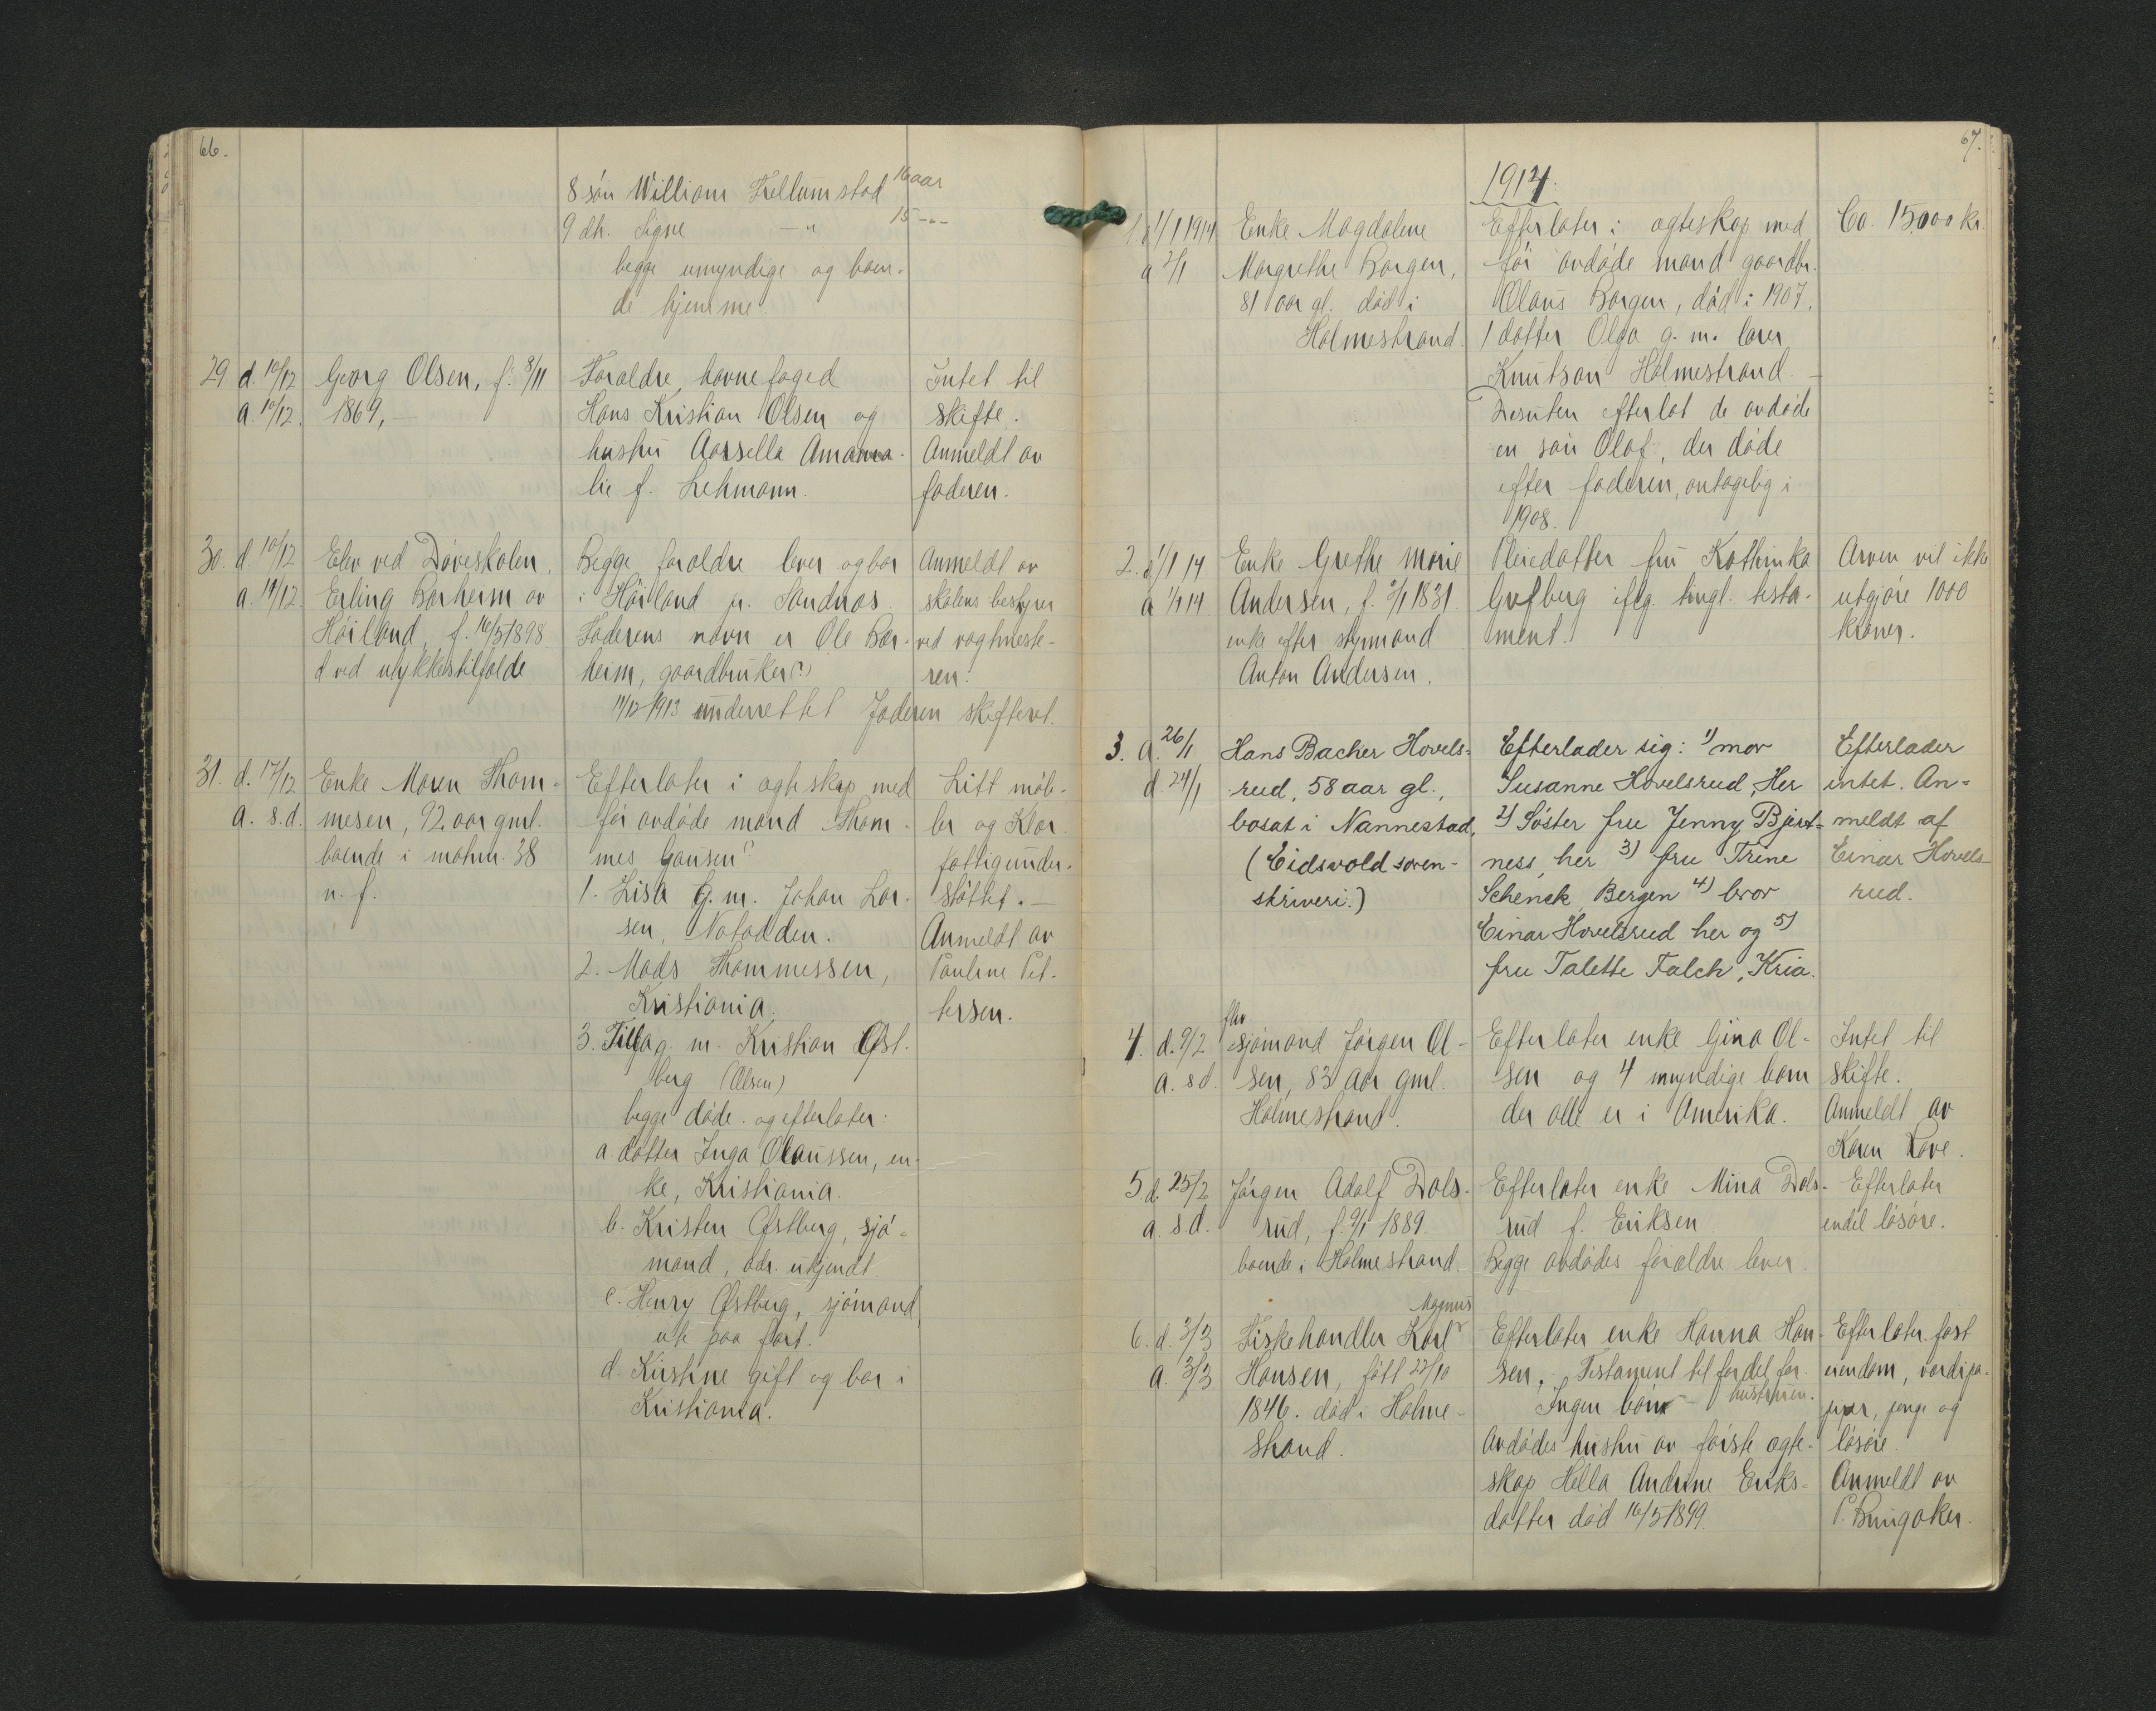 66.
8 søn William Trellumstad 16 aar
9 dt. Signe —"— 15 —"—
begge umyndige og boen-
de hjemme.
29 d. 10/12 Georg Olsen, f. 8/11
a. 10/12. 1869, —
Forældre, havnefoged
Hans Kristian Olsen og
hustru Aarsella Amana-
lie f. Lehmann.
Intet til
skifte.
Anmeldt av
faderen.
30. d. 10/12 Elev ved Døveskolen,
a. 14/12. Erling Barheim av
Høiland, f. 16/5 1898
d. ved ulykkestilfælde
Begge forældre lever og bor
i Høiland pr. Sandnæs
Faderens navn er Ole Bar-
heim, gaardbruker(?)
14/12 1913 underrettet Jæderen skifteret.
Anmeldt av
skolens bestyrer
ved vagtmeste-
ren.
31. d. 17/12 Enke Maren Thom-
a. s.d. mesen, 92 aar gml.
boende i matrn. 38
n. f.
Efterlater i ægteskap med
før avdøde mand Thom-
mes Hansen?
1. Lisa g. m. Johan Lar-
sen, Notodden.
2. Mads Thommessen,
Kristiania.
3. Tilla g. m. Kristian Øst- 
berg (Olsen)
begge døde. og efterlater:
a. datter Inga Olaussen, en-
ke, Kristiania.
b. Kristen Østberg, sjø-
mand, adr. ukjendt.
c. Henry Østberg, sjømand,
ute paa fart.
d. Kristine gift og bor i
Kristiania.
Litt møb-
ler og klær.
fattigunder-
støttet. —
Anmeldt av
Pauline Pet-
tersen.
67.
1914.
1. d 1/1 1914 Enke Magdalene
a 2/1 Margrethe Borgen,
81 aar gl. død i
Holmestrand.
Efterlater i ægteskap med
før avdøde mand gaardbr.
Olaus Borgen, død i 1907,
1 datter Olga g. m. lærer
Knutson Holmestrand. —
Desuten efterlot de avdøde
en søn Olaf, der døde
efter faderen, antagelig i
1908.
Ca. 15,000 kr.
2. d 1/1 14 Enke Grethe Marie
a 1/1 14 Andersen, f. 2/1 1831
enke efter styrmand
Anton Andersen.
Pleiedatter fru Kathinka
Gulberg iflg. tingl. testa-
ment.
Arven vil ikke
utgjøre 1000
kroner.
3. a. 26/1 Hans Bacher Hovels-
d. 24/1 rud, 58 aar gl.,
bosat i Nannestad,
(Eidsvold soren-
skriveri.)
Efterlader sig: 1) mor
Susanne Hovelsrud, Her
2) Søster fru Jenny Bjert-
ness, her 3) fru Trine
Schenck, Bergen 4) bror
Einar Hovelsrud her og 5)
fru Talette Falch, Kria.
Efterlader
intet. An-
meldt af
Einar Hovels-
rud.
4. d. 9/2 fhv sjømand Jørgen Ol-
a. s d. sen, 83 aar gml.
Holmestrand.
Efterlater enke Gina Ol-
sen og 4 myndige barn
der alle er i Amerika.
Intet til
skifte.
Anmeldt av
Karen Rove.
5. d. 25/2 Jørgen Adolf Dals-
a. s d. rud, f. 9/1 1889
boende i Holmestrand.
Efterlater enke Mina Dals-
rud f. Eriksen
Begge avdødes forældre lever.
Efterlater
endel løsøre.
6. d. 3/3 Fiskehandler Karl Magnus
a. 3/3 Hansen, født 22/10
1846. død i Holme-
strand.
Efterlater enke Hanna Han-
sen. Testament til fordel for
Ingen børn — hustruen.
Avdødes hustru av første ægte-
skap Hella Andrine Eriks-
datter død 16/5 1899.
Efterlater fast
eiendom, værdipa-
pirer, penge og
løsøre.
Anmeldt av
P. Bringaker.